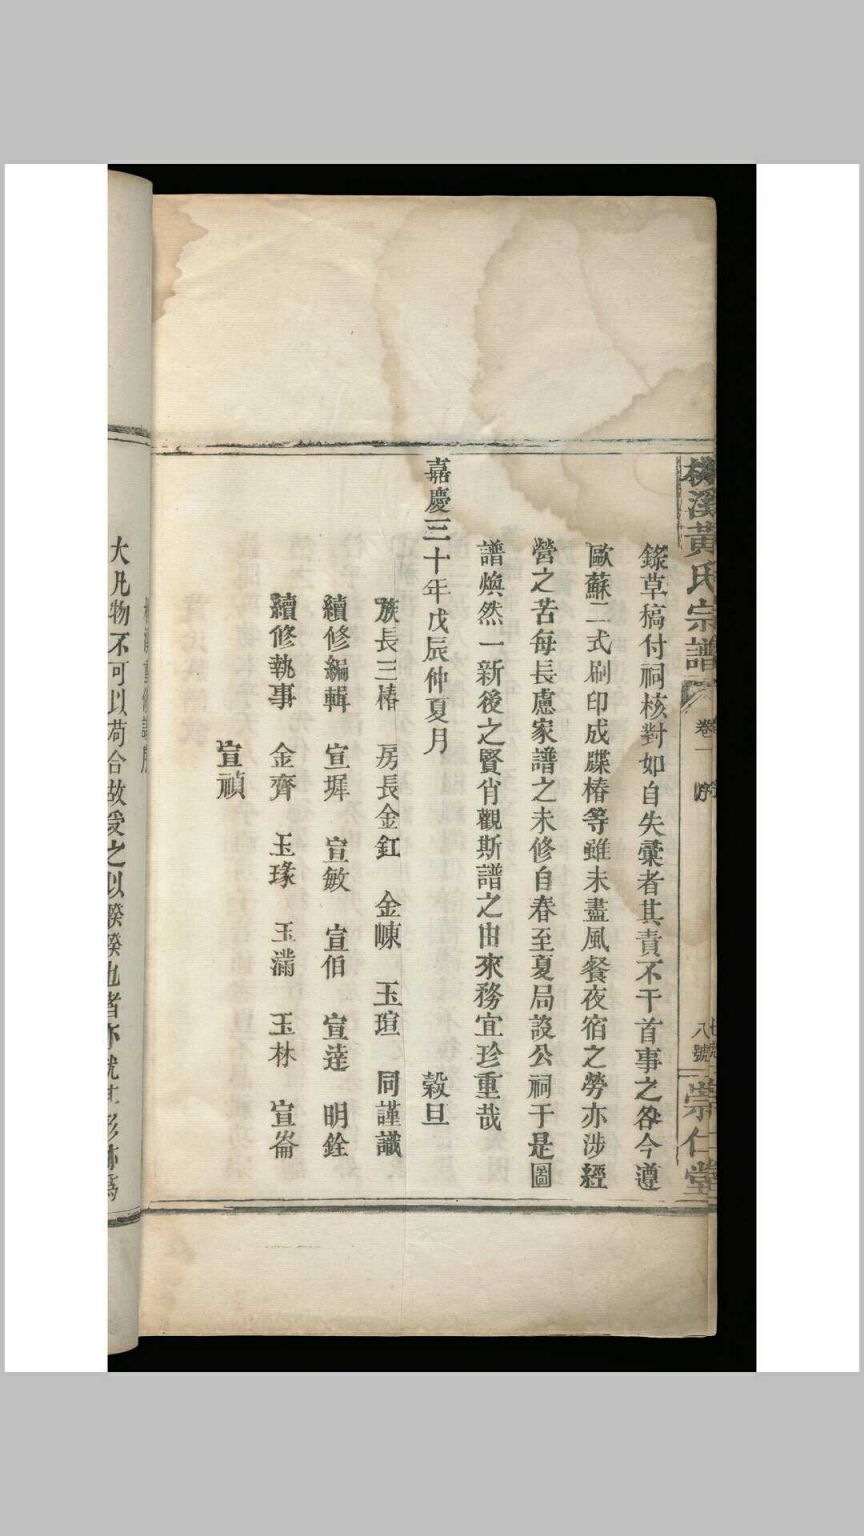 溪黃氏宗譜
卷一 序
八號
崇仁堂
錄草稿付祠核對如自失彙者其責不干首事之咎今遵
歐蘇二式刷印成牒椿等雖未盡風餐夜宿之勞亦涉經
營之苦每長慮家譜之未修自春至夏局設公祠于是圖
譜煥然一新後之賢肖觀斯譜之由來務宜珍重哉
嘉慶三十年戊辰仲夏月 穀旦
族長三椿 房長金釭 金崠 玉瑄 同謹識
續修編輯 宣墀 宣敏 宣伯 宣達 明銓
續修執事 金齊 玉瑑 玉滿 玉林 宣崙
宣禎
大凡物不可以苟合故受之以